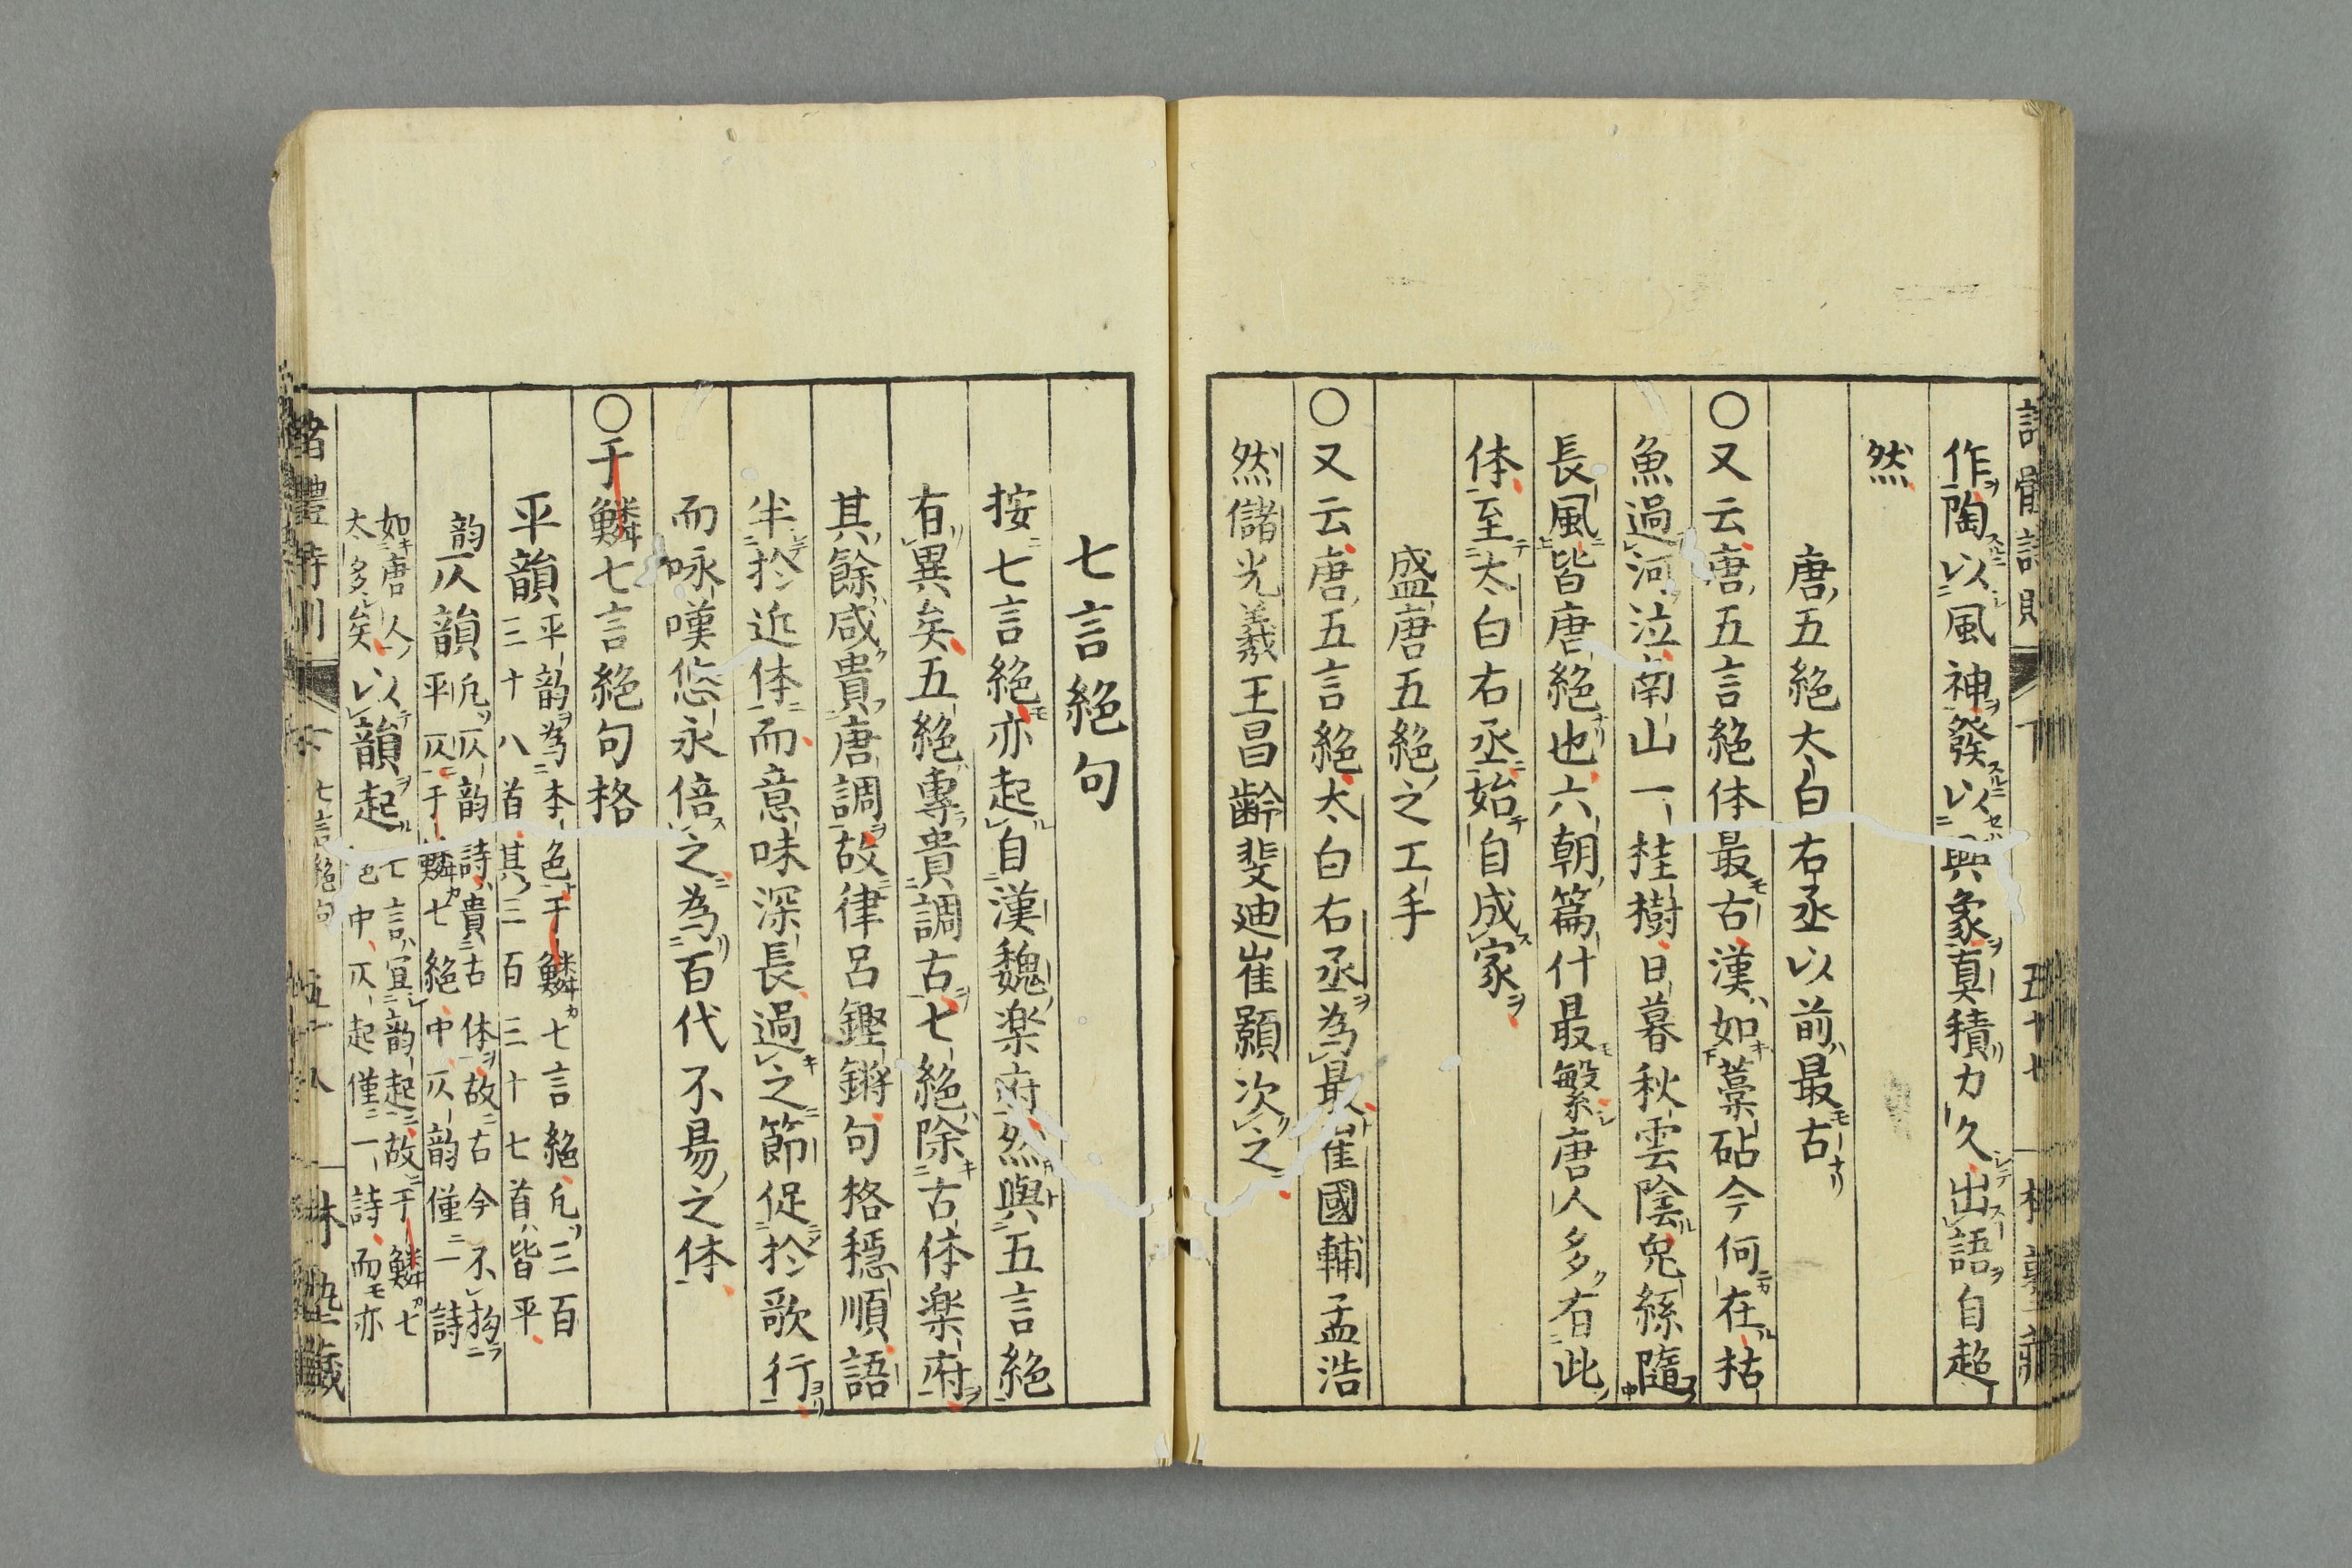 作陶以風神發以興象真積力久出語自超
然
唐五絕太白右丞以前最古
〇又云唐五言絕体最古漢如藁砧今何在枯
魚過河泣南山一桂樹日暮秋雲陰兔絲隨
長風皆唐絕也六朝篇什最繁唐人多有此
体至太白右丞始自成家
盛唐五絕之工手
〇又云唐五言絕太白右丞為最崔國輔孟浩
然儲光羲王昌齡斐迪崔顥次之
七言絕句
按七言絕亦起自漢魏楽府然與五言絕
有異矣五絕專貴調古七絕除古体楽府
其餘咸貴唐調故律呂鏗鏘句格穩順語
半於近体而意味深長過之節促於歌行
而咏嘆悠永倍之為百代不易之体
〇于鱗七言絕句格
平韻平韵為本色于鱗七言絕凡三百
三十八首其三百三十七首皆平
韵仄韻凡仄韵詩貴古体故古今不拘
平仄于鱗七絕中仄韵僅一詩
如唐人太多矣以韻起七言宜韵起故于鱗七
絕中仄起僅一詩而亦
七言絕句